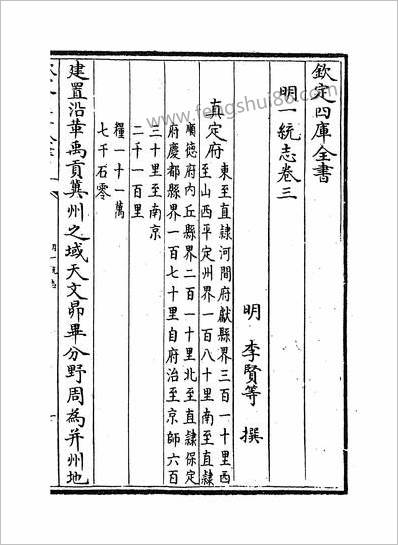 欽定四庫全書
明一統志卷三
明 李賢等 撰
真定府 東至直隸河間府獻縣界三百一十里西
至山西平定州界一百八十里南至直隸
順德府内丘縣界二百一十里北至直隸保定
府慶都縣界一百七十里自府治至京師六百
三十里至南京
二千一百里
糧一十一萬
七千石零
建置沿革禹貢冀州之域天文昴畢分野周為并州地
www.fengshui86.com